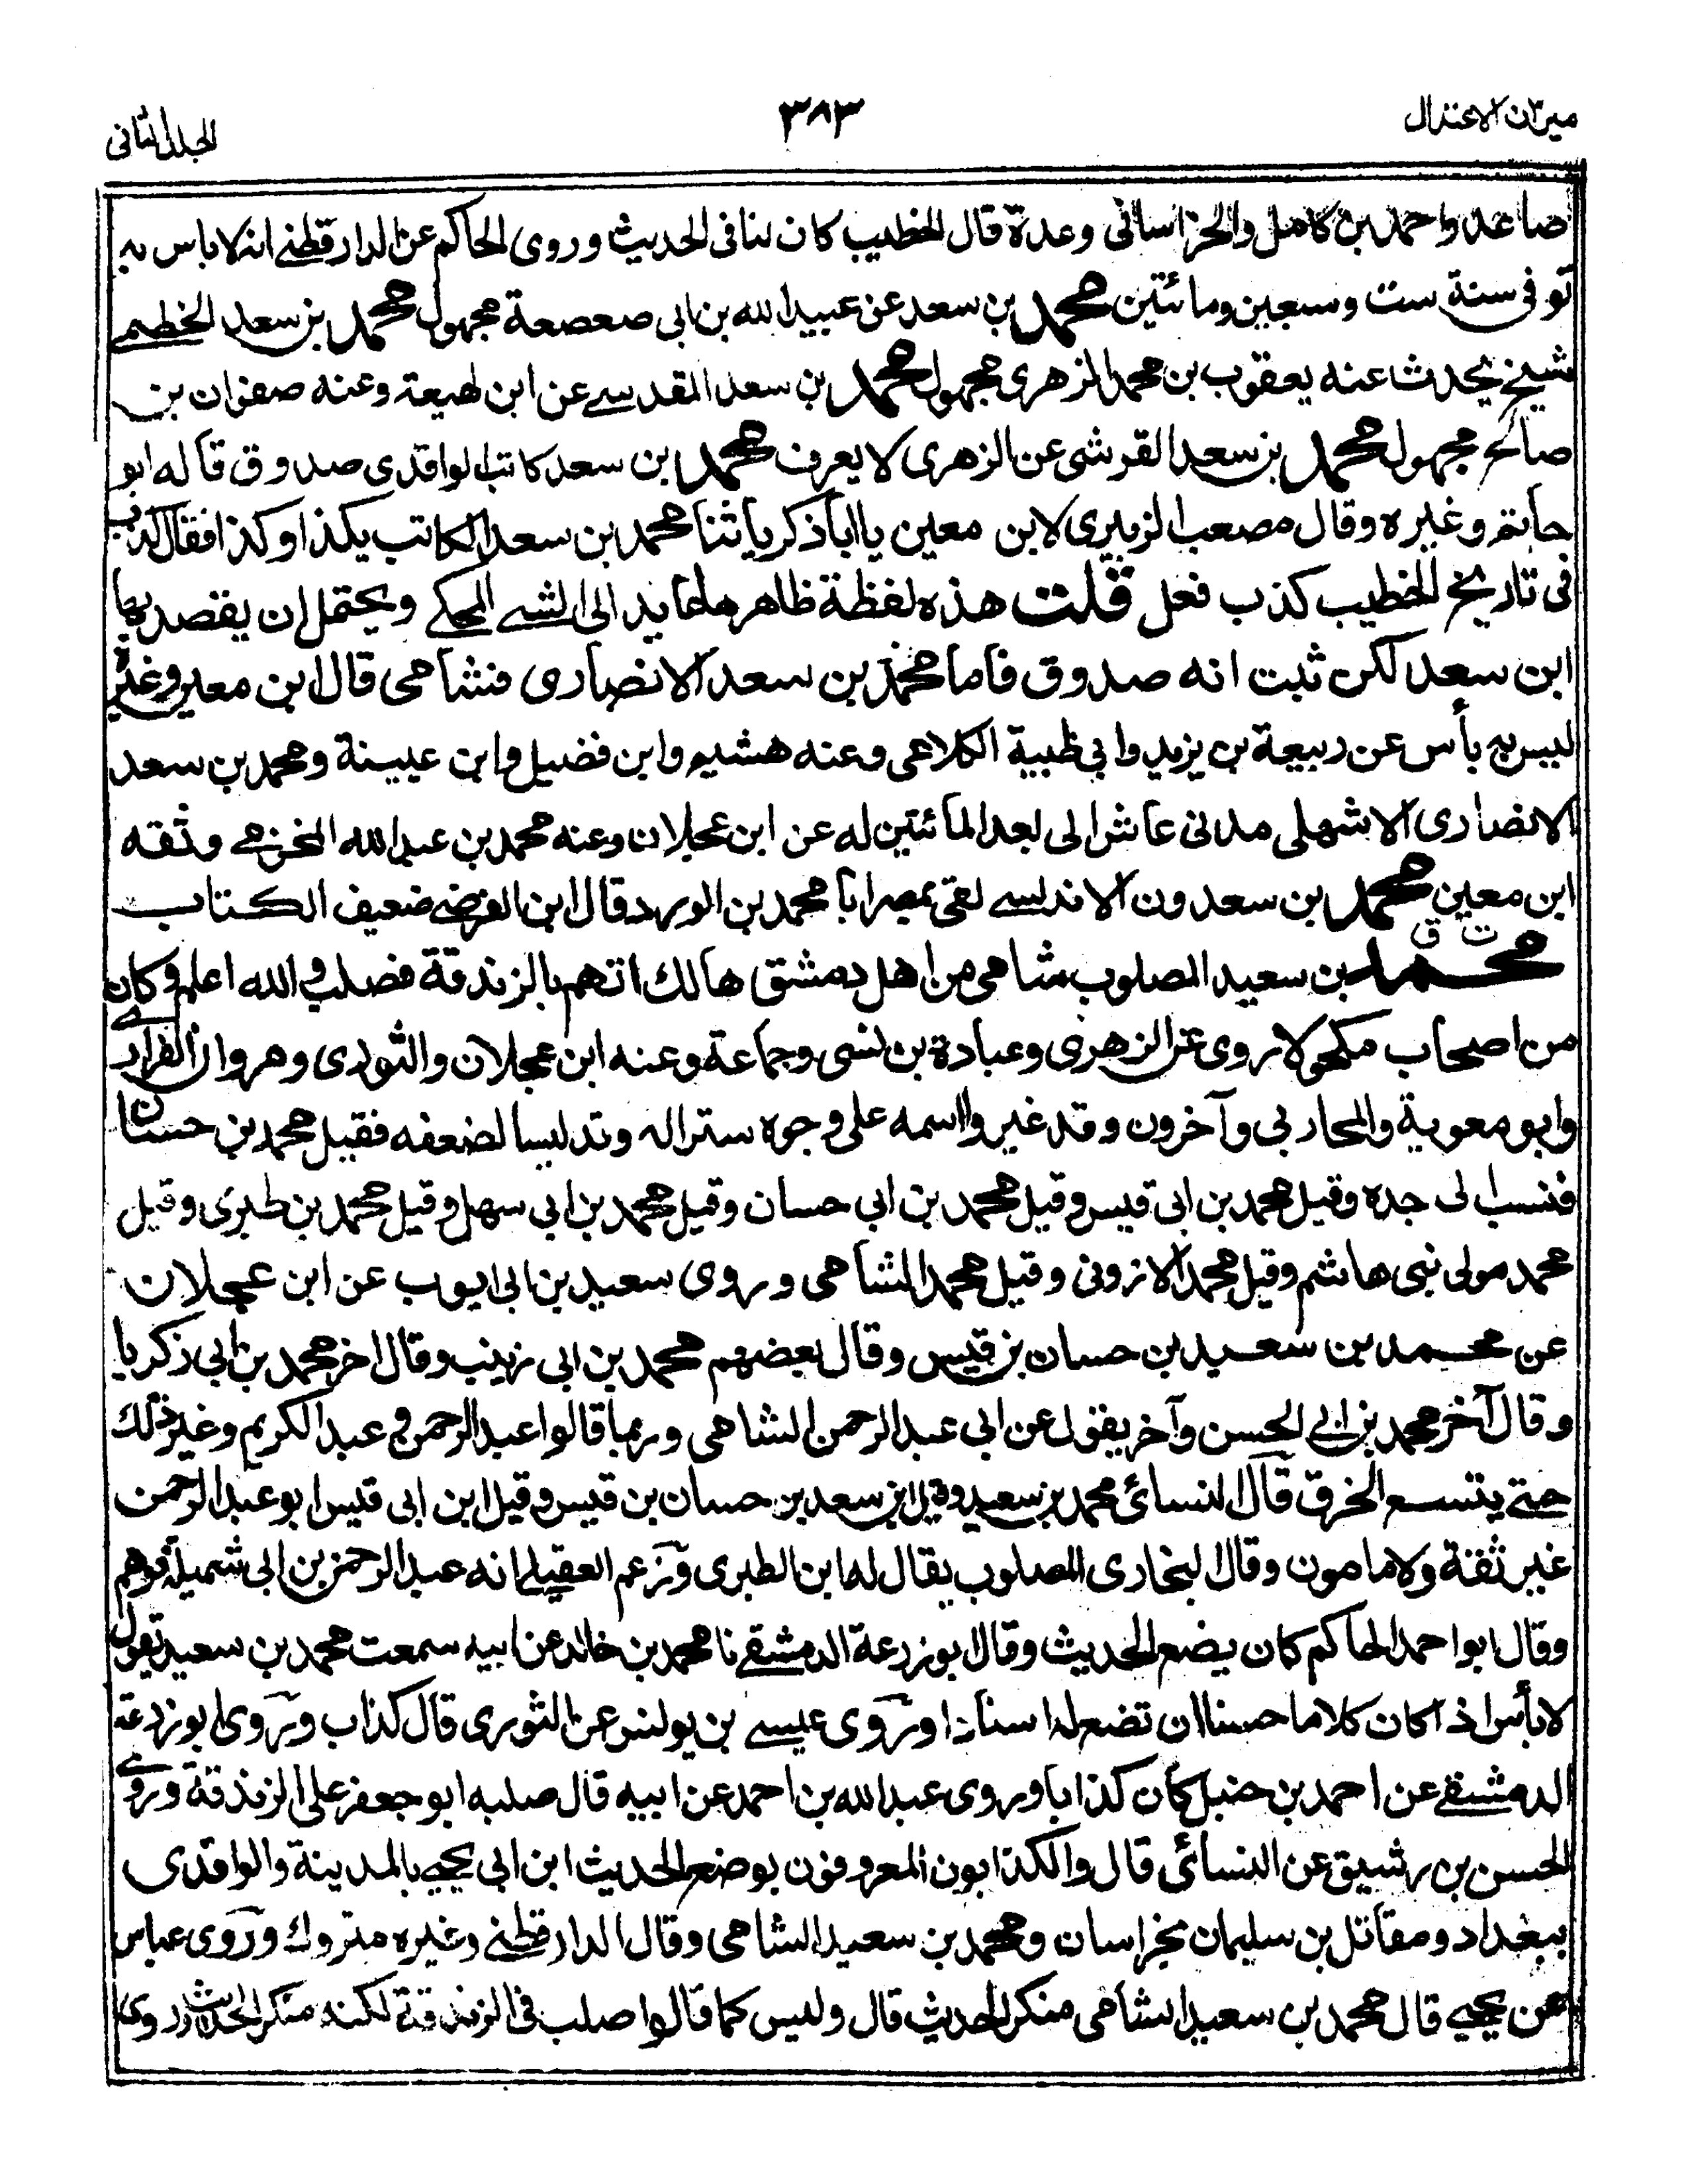 ميزان الاعتدال
٣٨٣
الجلد الثاني
صاعد واحمد بن كامل والخراساني وعدة قال الخطيب كان لنا في الحديث وروى الحاكم عن الدارقطني انه لا باس به
توفي سنة ست وسبعين ومائتين محمد بن سعد عن عبيد الله بن ابي صعصعة مجهول محمد بن سعد الخطمي
شيخ يحدث عنه يعقوب بن محمد الزهري مجهول محمد بن سعد المقدسي عن ابن لهيعة وعنه صفوان بن
صالح مجهول محمد بن سعد القرشي عن الزهري لا يعرف محمد بن سعد كاتب الواقدي صدوق قاله ابو
حاتم وغيره وقال مصعب الزبيري لابن معين يا ابا ذكريا ثنا محمد بن سعد الكاتب بكذا وكذا فقال كذب
في تاريخ الخطيب كذب فعل قلت هذه لفظة ظاهرها عايد الى الشي المحكي ويحتمل ان يقصد بها
ابن سعد لكن ثبت انه صدوق فاما محمد بن سعد الانصاري فشامي قال ابن معين وغيره
ليس به بأس عن ربيعة بن يزيد وابي ظبية الكلاعي وعنه هشيم وابن فضيل وابن عيينة ومحمد بن سعد
الانصاري الاشهلي مدني عاش الى بعد المائتين له عن ابن عجلان وعنه محمد بن عبد الله المخرمي وثقه
ابن معين محمد بن سعدون الاندلسي لقي بمصر ابا محمد بن الورد قال ابن الفرضي ضعيف الكتاب
ت ق
محمد بن سعيد المصلوب شامي من اهل دمشق هالك اتهم بالزندقة فصلب والله اعلم وكان
من اصحاب مكحول روى عن الزهري وعبادة بن نسي وجماعة وعنه ابن عجلان والثوري ومروان الفزاري
وابو معوية والمحاربي وآخرون وقد غيروا اسمه على وجوه سترا له وتدليسا لضعفه فقيل محمد بن حسان
فنسب الى جده وقيل محمد بن ابي قيس وقيل محمد بن ابي حسان وقيل محمد بن ابي سهل وقيل محمد بن طبري وقيل
محمد مولى بني هاشم وقيل محمد الازدني وقيل محمد الشامي وروى سعيد بن ابي ايوب عن ابن عجلان
عن محمد بن سعيد بن حسان بن قيس وقال بعضهم محمد بن ابي زينب وقال اخر محمد بن ابي ذكريا
وقال آخر محمد بن ابي الحسن وآخر يقول عن ابي عبد الرحمن الشامي وربما قالوا عبد الرحمن وعبد الكريم وغير ذلك
حتى يتسع الخرق قال النسائي محمد بن سعيد وقيل ابن سعد بن حسان بن قيس وقيل ابن ابي قيس ابو عبد الرحمن
غير ثقة ولا مامون وقال البخاري المصلوب يقال له ابن الطبري وزعم العقيلي انه عبد الرحمن بن ابي شميلة فوهم
وقال ابو احمد الحاكم كان يضع الحديث وقال ابو زرعة الدمشقي نا محمد بن خالد عن ابيه سمعت محمد بن سعيد يقول
لا بأس اذا كان كلاما حسنا ان تضع له اسنادا وروى عيسى بن يونس عن الثوري قال كذاب وروى ابو زرعة
الدمشقي عن احمد بن حنبل كان كذابا وروى عبد الله بن احمد عن ابيه قال صلبه ابو جعفر على الزندقة وروى
الحسن بن رشيق عن النسائي قال والكذابون المعروفون بوضع الحديث ابن ابي يحيى بالمدينة والواقدي
ببغداد ومقاتل بن سليمان بخراسان ومحمد بن سعيد الشامي وقال الدارقطني وغيره متروك وروى عباس
عن يحيى قال محمد بن سعيد الشامي منكر الحديث قال وليس كما قالوا صلب في الزندقة لكنه منكر الحديث روى